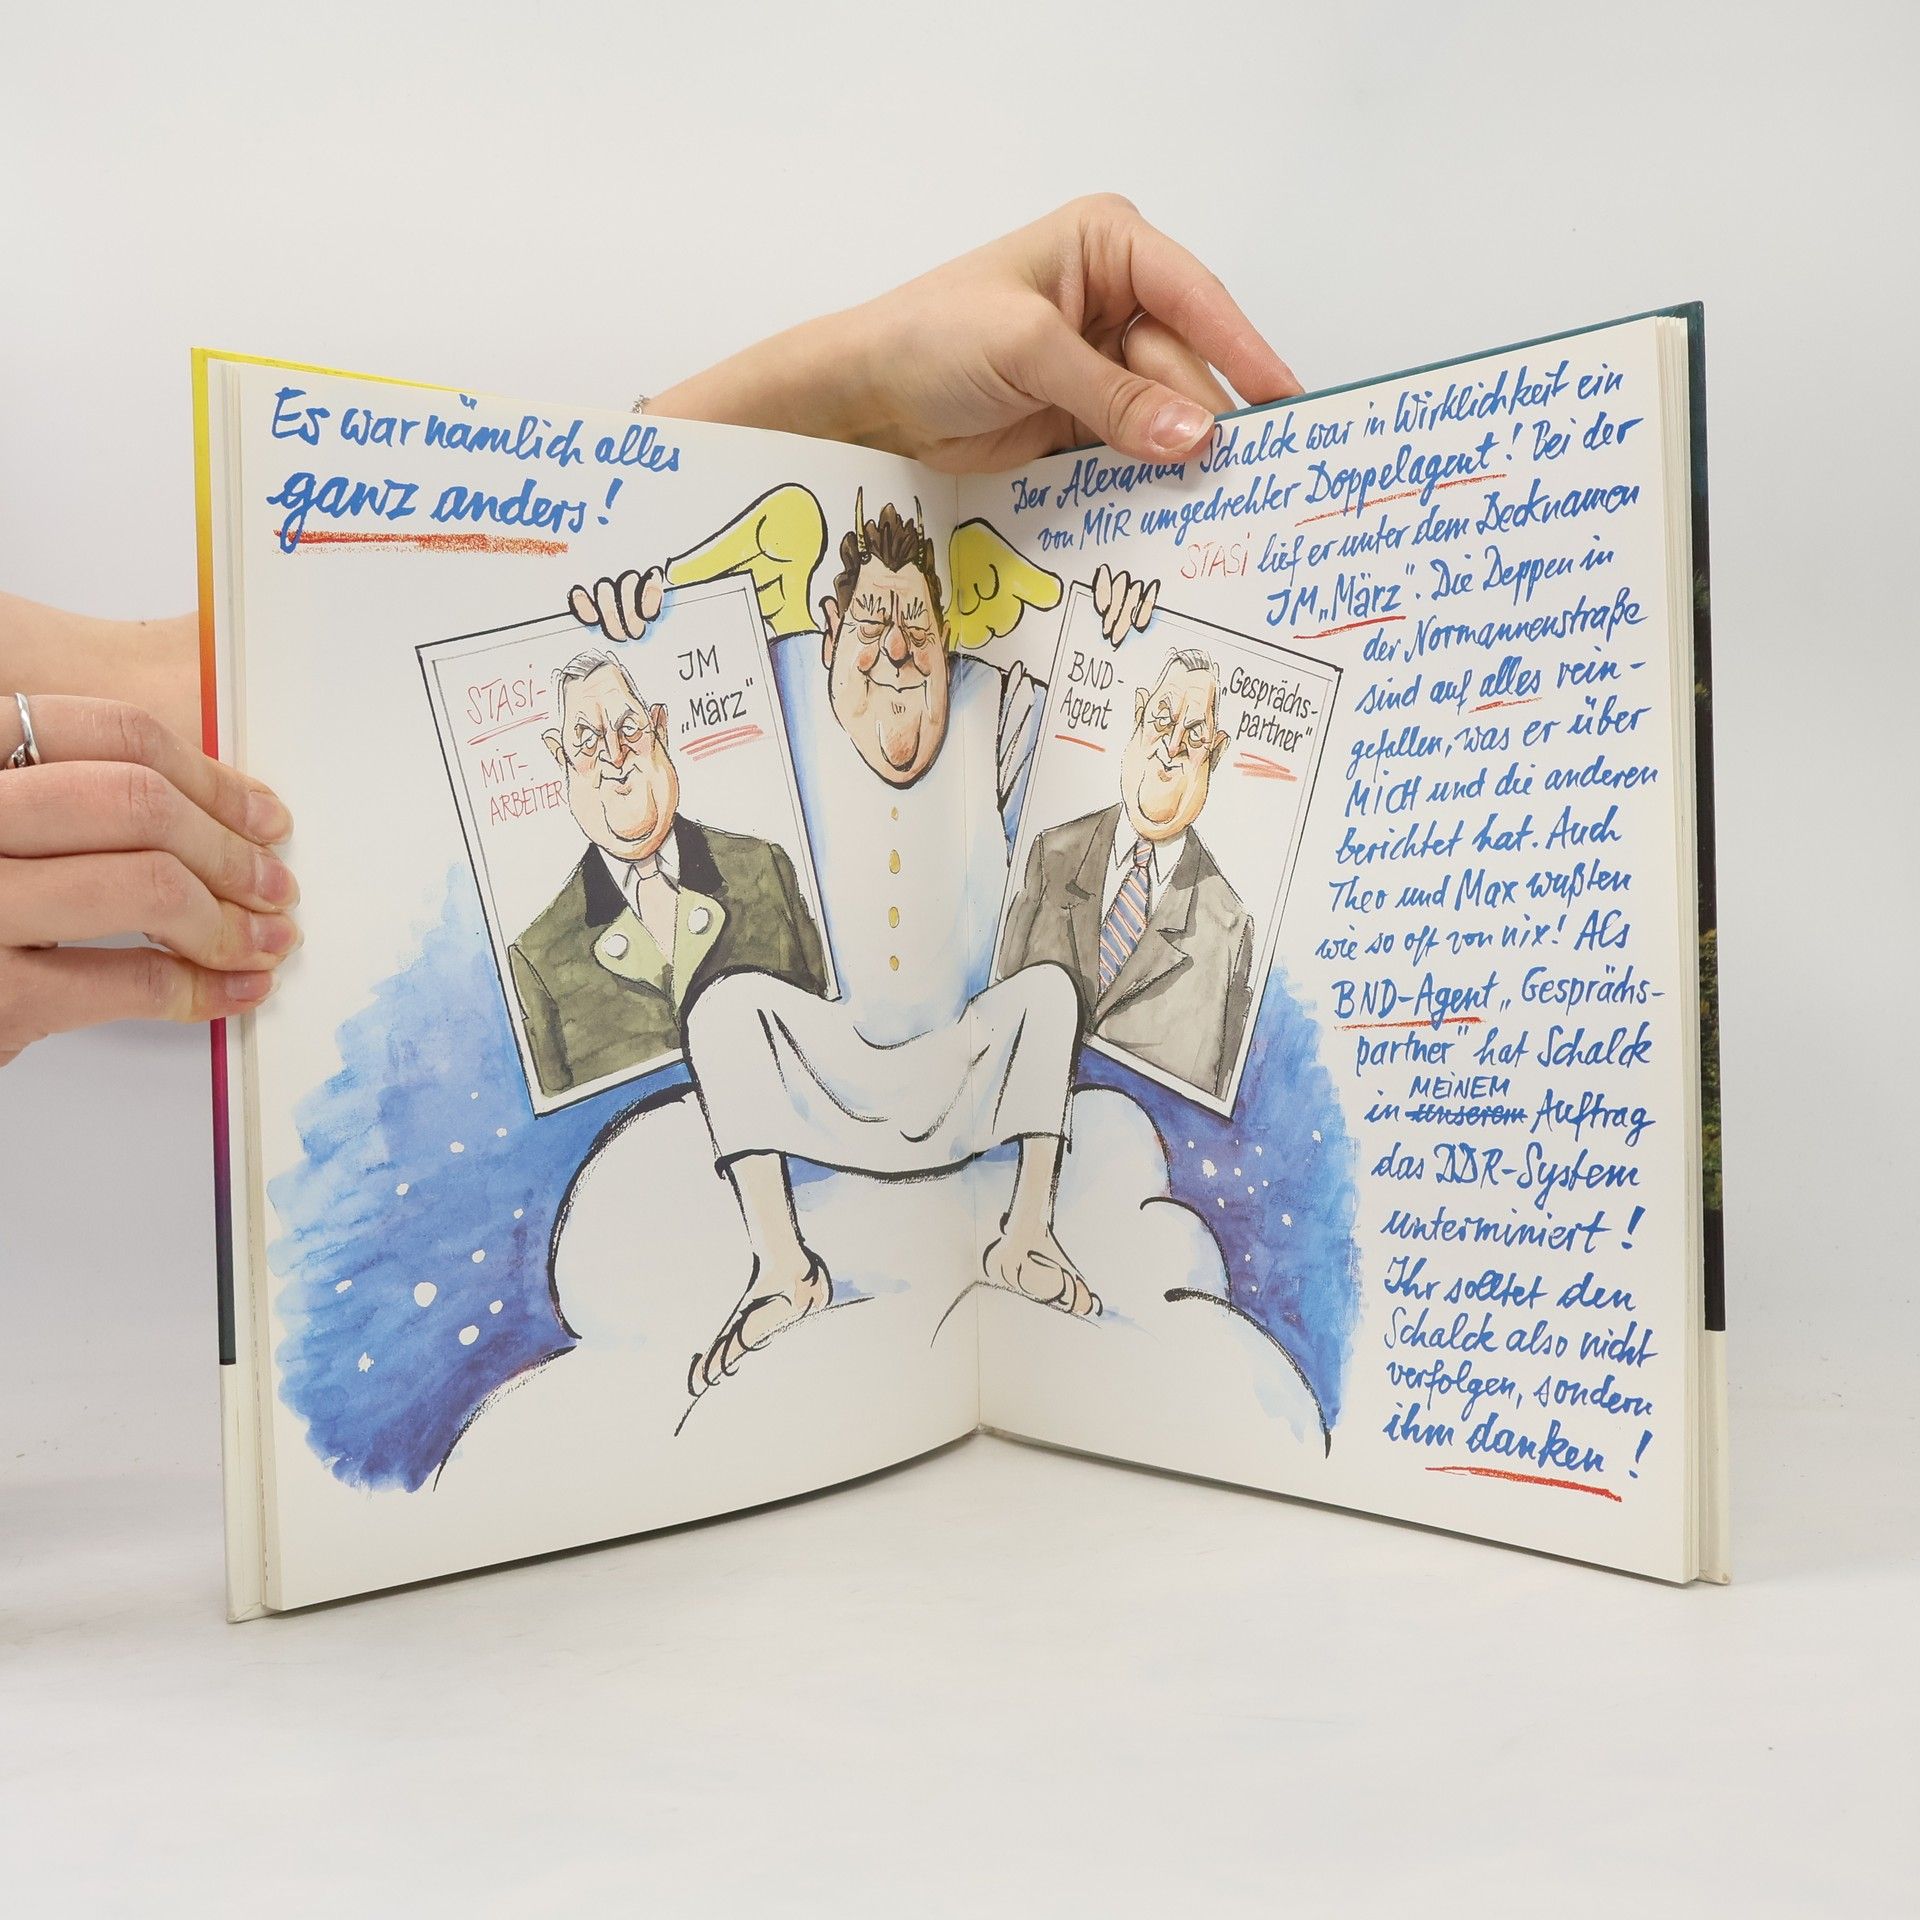 Es war nämlich alles
ganz anders!
STASI-
MIT-
ARBEITER
JM
„März"
BND-
Agent
„Gesprächs-
partner"
Der Alexander Schalck war in Wirklichkeit ein
von MIR umgedrehter Doppelagent! Bei der
STASI lief er unter dem Decknamen
JM „März". Die Deppen in
der Normannenstraße
sind auf alles rein-
gefallen, was er über
MICH und die anderen
berichtet hat. Auch
Theo und Max wußten
wie so oft von nix! Als
BND-Agent „Gesprächs-
partner" hat Schalck
MEINEM
in unserem Auftrag
das DDR-System
unterminiert!
Ihr solltet den
Schalck also nicht
verfolgen, sondern
ihm danken!